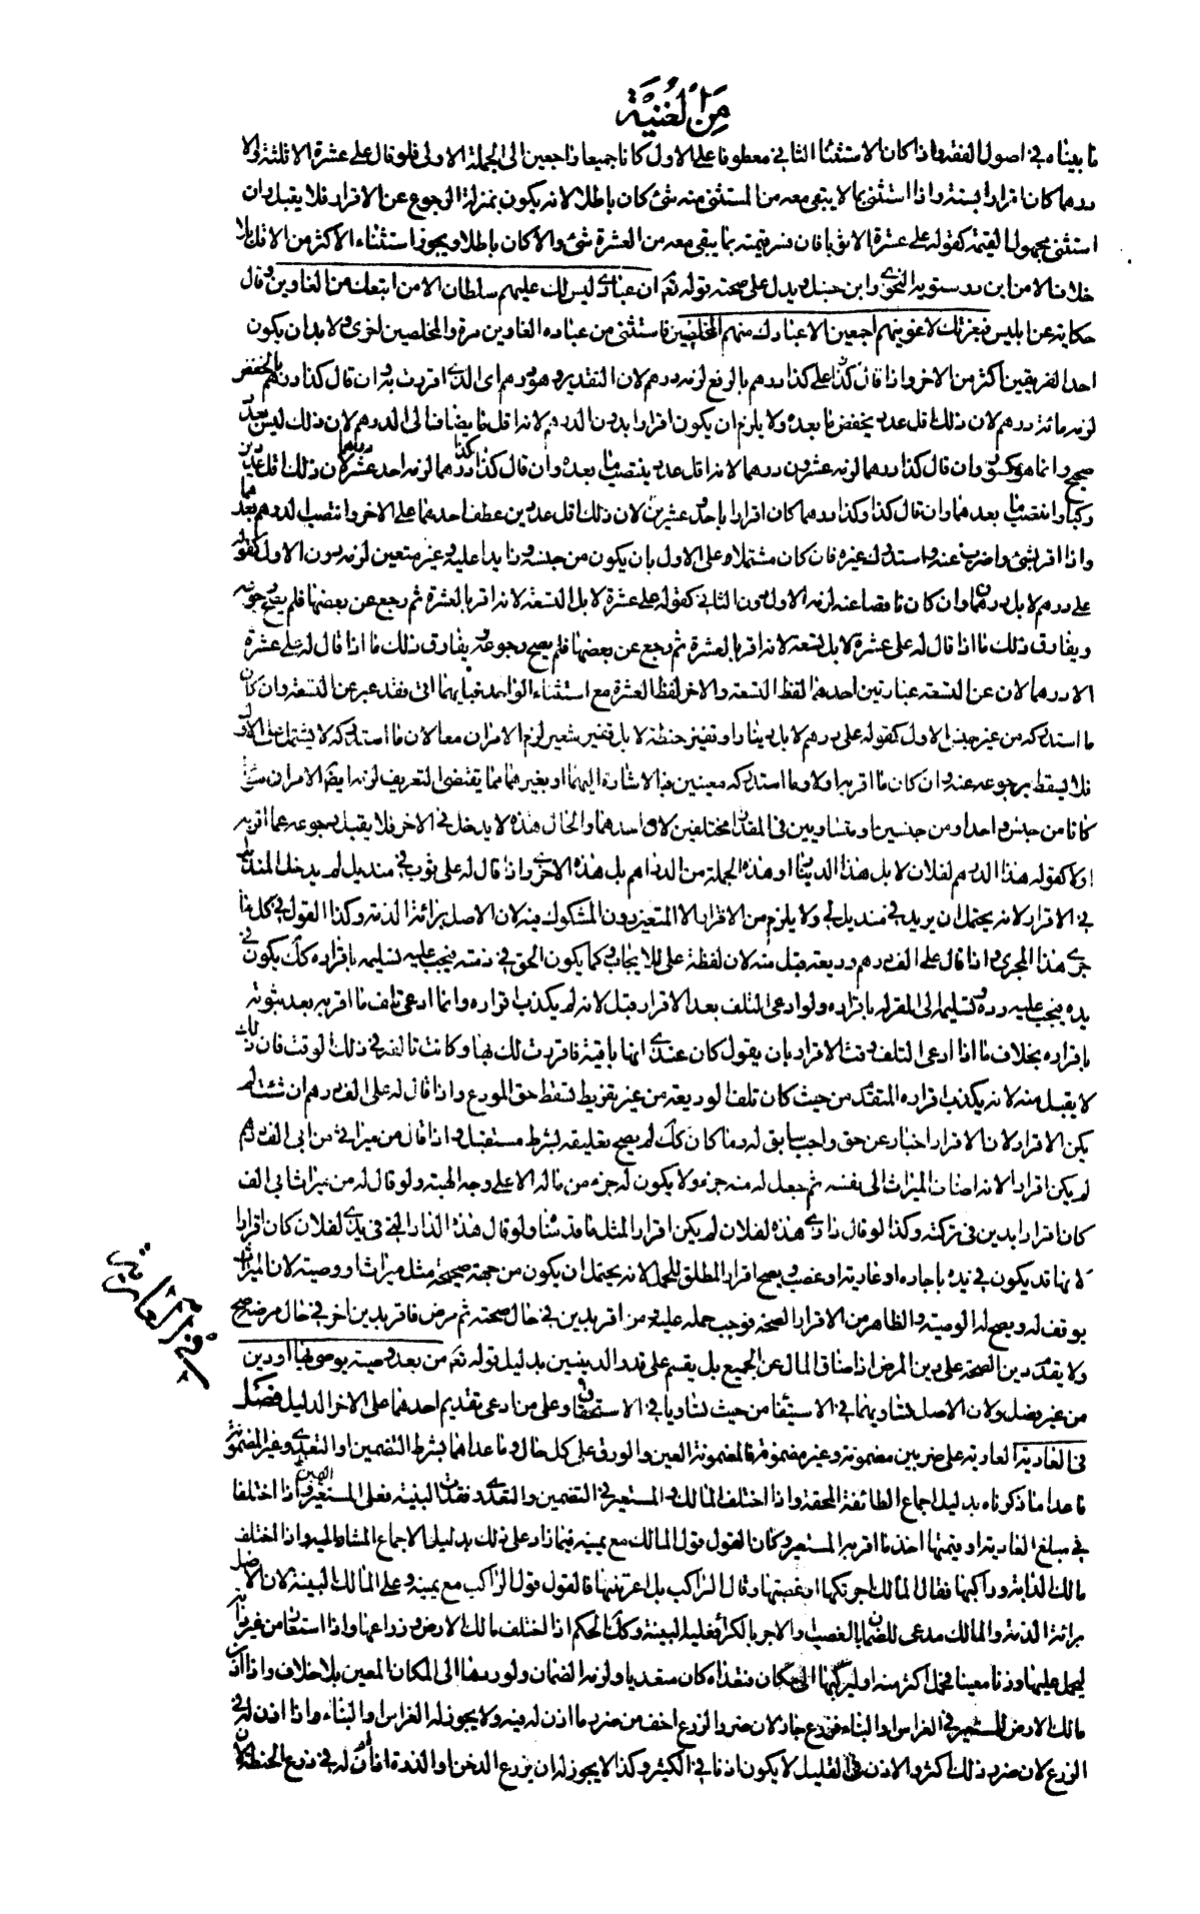 مِنَ الغُنْيَة
ما بيناه في اصول الفقه واذا كان الاستثناء الثاني معطوفا على الاول كانا جميعا راجعين الى الجملة الاولى فلو قال علي عشرة الا ثلثة والا
درهما كان اقرارا بستة واذا استثنى بما لا يبقى معه من المستثنى منه شئ كان باطلا لانه يكون بمنزلة الرجوع عن الاقرار فلا يقبل وان
استثنى بمجهول القيمة كقوله علي عشرة الا ثوبا فان فسر قيمته بما يبقى معه من العشرة شئ والا كان باطلا ويجوز استثناء الاكثر من الاقل بلا
خلاف الا من ابن درستويه النحوي وابن حنبل ويدل على صحته قوله تعم ان عبادي ليس لك عليهم سلطان الا من اتبعك من الغاوين وقال
حكاية عن ابليس فبعزتك لاغوينهم اجمعين الا عبادك منهم المخلصين فاستثنى من عباده الغاوين مرة والمخلصين اخرى ولا بد ان يكون
احد الفريقين اكثر من الاخر واذا قال كذا علي كذا درهم بالرفع لزمه درهم لان التقدير هو درهم اى الذي اقررت به وان قال كذا درهم بالخفض
لزمه مائة درهم لان ذلك اقل عدد يخفض ما بعده ولا يلزم ان يكون اقرارا بدون الدرهم لانه اقل ما يضاف الى الدرهم لان ذلك ليس بعدد
صحيح وانما هو كسور وان قال كذا درهما لزمه عشرون درهما لانه اقل عدد ينتصب ما بعده وان قال كذا كذا درهما لزمه احد عشر درهما لان ذلك اقل عددين
ركبا وانتصب ما بعدهما وان قال كذا وكذا درهما كان اقرارا باحد وعشرين لان ذلك اقل عددين عطف احدهما على الاخر وانتصب الدرهم بعدهما
واذا اقر بشئ واضرب عنه واستدرك غيره فان كان مشتملا على الاول بان يكون من جنسه وزايدا عليه وغير متعين لزمه دون الاول كقوله
علي درهم لا بل درهمان وان كان ناقصا عنه لزمه الاول دون الثاني كقوله علي عشرة لا بل تسعة لانه اقر بالعشرة ثم رجع عن بعضها فلم يصح رجوعه
ويفارق ذلك ما اذا قال له علي عشرة لا بل تسعة لانه اقر بالعشرة ثم رجع عن بعضها فلم يصح رجوعه ويفارق ذلك ما اذا قال له علي عشرة
الا درهما لان عن التسعة عبارتين احدهما لفظ التسعة والاخر لفظ العشرة مع استثناء الواحد فبايهما اتى فقد عبر عن التسعة وان كان
ما استدركه من غير جنس الاول كقوله علي درهم لا بل دينار او قفيز حنطة لا بل قفيز شعير لزم الامران معا لان ما استدركه لا يشتمل على الاول
فلا يسقط برجوعه عنه وان كان ما اقر به اولا وما استدركه معينين بالاشارة اليهما او بغيرها مما يقتضى التعريف لزمه ايضا الامران سواء
كانا من جنس واحد او من جنسين او متساويين في المقدار مختلفين لان احدهما والحال هذه لا يدخل في الاخر فلا يقبل رجوعه عما اقر به
اولا كقوله هذا الدرهم لفلان لا بل هذا الدينار او هذه الجملة من الدراهم بل هذه الاخرى واذا قال له علي ثوب في منديل لم يدخل المنديل
في الاقرار لانه يحتمل ان يريد في منديل لي ولا يلزم من الاقرار الا المتيقن دون المشكوك فيه لان الاصل برائة الذمة وكذا القول في كل ما
جرى هذا المجرى واذا قال علي الف درهم وديعة قبل منه لان لفظة علي للايجاب وكما يكون الحق في ذمته فيجب عليه تسليمه باقراره كك يكون في
يده فيجب عليه رده وتسليمه الى المقر له باقراره ولو ادعى التلف بعد الاقرار قبل لانه لم يكذب اقراره وانما ادعى تلف ما اقر به بعد ثبوته
باقراره بخلاف ما اذا ادعى التلف وقت الاقرار بان يقول كان عندي انها باقية فاقررت لك بها وكانت تالفة في ذلك الوقت فان ذلك
لا يقبل منه لانه يكذب اقراره المتقدم من حيث كان تلف الوديعة من غير تفريط تسقط حق المودع واذا قال له علي الف درهم ان شئت لم
يكن الاقرار لان الاقرار اخبار عن حق واجب سابق له وما كان كك لم يصح تعليقه بشرط مستقبل واذا قال من ميراثي من ابي الف درهم
لم يكن اقرارا لانه اضاف الميراث الى نفسه ثم جعل له منه جزء ولا يكون له جزء من ماله الا على وجه الهبة ولو قال له من ميراث ابي الف
كان اقرارا بدين في تركته وكذا لو قال داري هذه لفلان لم يكن اقرارا لمثل ما قدمنا ولو قال هذه الدار التي في يدي لفلان كان اقرارا
لانها قد يكون في يده باجارة او عارية او غصب ويصح اقرار المطلق للحمل لانه يحتمل ان يكون من جهة صحيحة مثل ميراث او وصية لان الميراث
يوقف له ويصح له الوصية والظاهر من الاقرار الصحة فوجب حمله عليه ومن اقر بدين في حال صحته ثم مرض فاقر بدين اخر في حال مرضه صح
ولا يقدم دين الصحة على دين المرض اذا ضاق المال عن الجميع بل يقسم على قدر الدينين بدليل قوله تعم من بعد وصية يوصى بها او دين
من غير فصل ولان الاصل تساويهما في الاستيفاء من حيث تساويا في الاستحقاق وعلى من ادعى تقديم احدهما على الاخر الدليل فصل
في العارية العارية على ضربين مضمونة وغير مضمونة فالمضمونة العين والورق على كل حال وما عداهما بشرط التضمين او التعدي وغير المضمونة
ما عدا ما ذكرناه بدليل اجماع الطائفة المحقة واذا اختلف المالك والمستعير في التضمين والتعدي وفقدت البينة فعلى المستعير اليمين واذا اختلفا
في مبلغ العارية او قيمتها اخذ ما اقر به المستعير وكان القول قول المالك مع يمينه فيما زاد على ذلك بدليل الاجماع المشار اليه واذا اختلف
مالك الدابة وراكبها فقال المالك اجرتكها او غصبتها وقال الراكب بل اعرتنيها فالقول قول الراكب مع يمينه وعلى المالك البينة لان الاصل
برائة الذمة والمالك مدعى للضمان بالغصب والاجر بالكراء فعليه البينة وكك الحكم اذا اختلف مالك الارض وزراعها واذا استعار من غيره دابة
ليحمل عليها وزنا معينا فحمل اكثر منه او ليركبها الى مكان فتعداه كان متعديا ولزمه الضمان ولو ردها الى المكان المعين بلا خلاف واذا اذن
مالك الارض للمستعير في الغراس او البناء فزرع جاز لان ضرر الزرع اخف من ضرر ما اذن له فيه ولا يجوز له الغراس والبناء واذا اذن له في
الزرع لان ضرر ذلك اكثر والاذن في القليل لا يكون اذنا في الكثير وكذا لا يجوز له ان يزرع الدخن او الذرة اذا اذن له في زرع الحنطة لان
في العارية